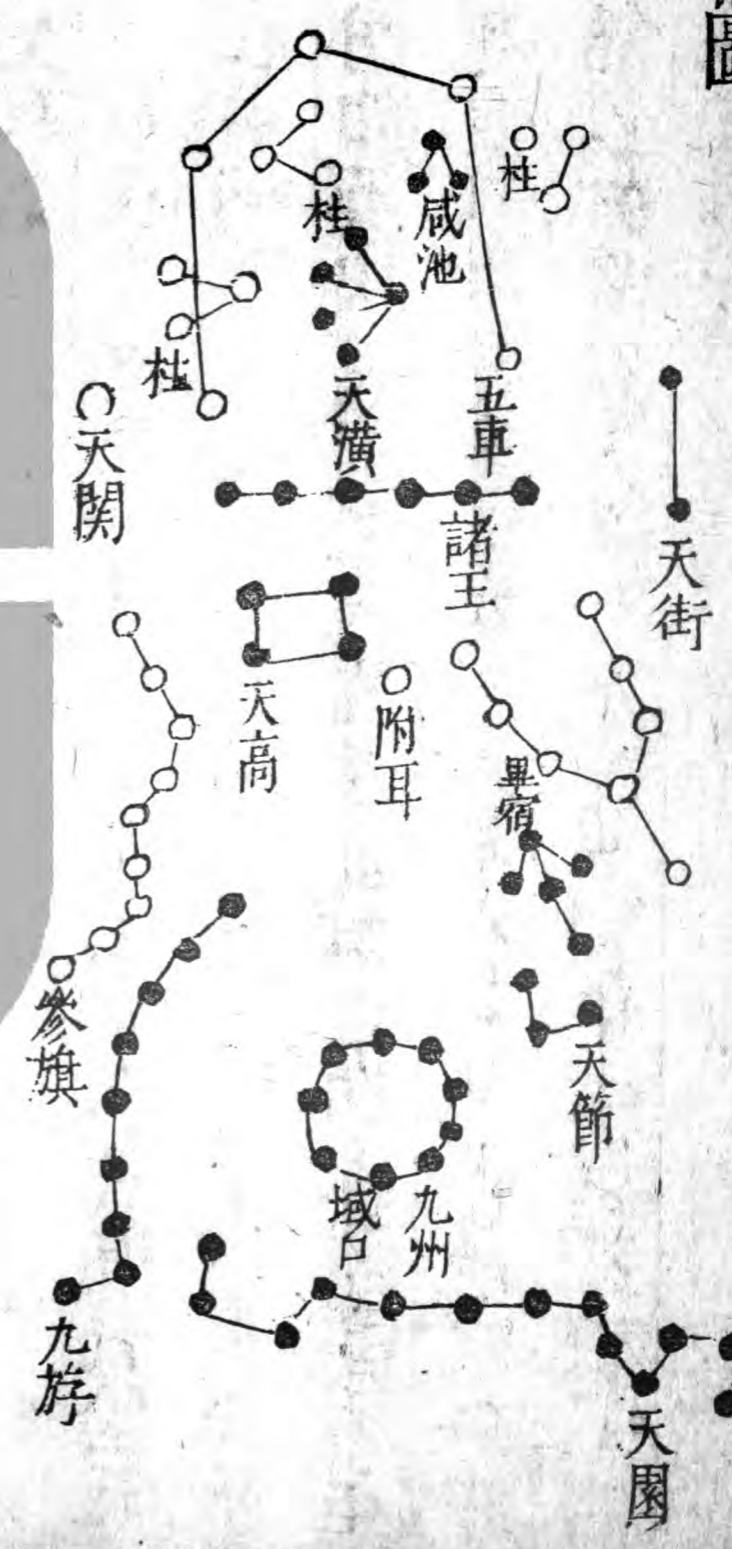 柱
咸池
柱
柱
五車
天潢
天関
諸王
天街
天高
附耳
畢宿
參旗
天節
九州
域口
九斿
天園